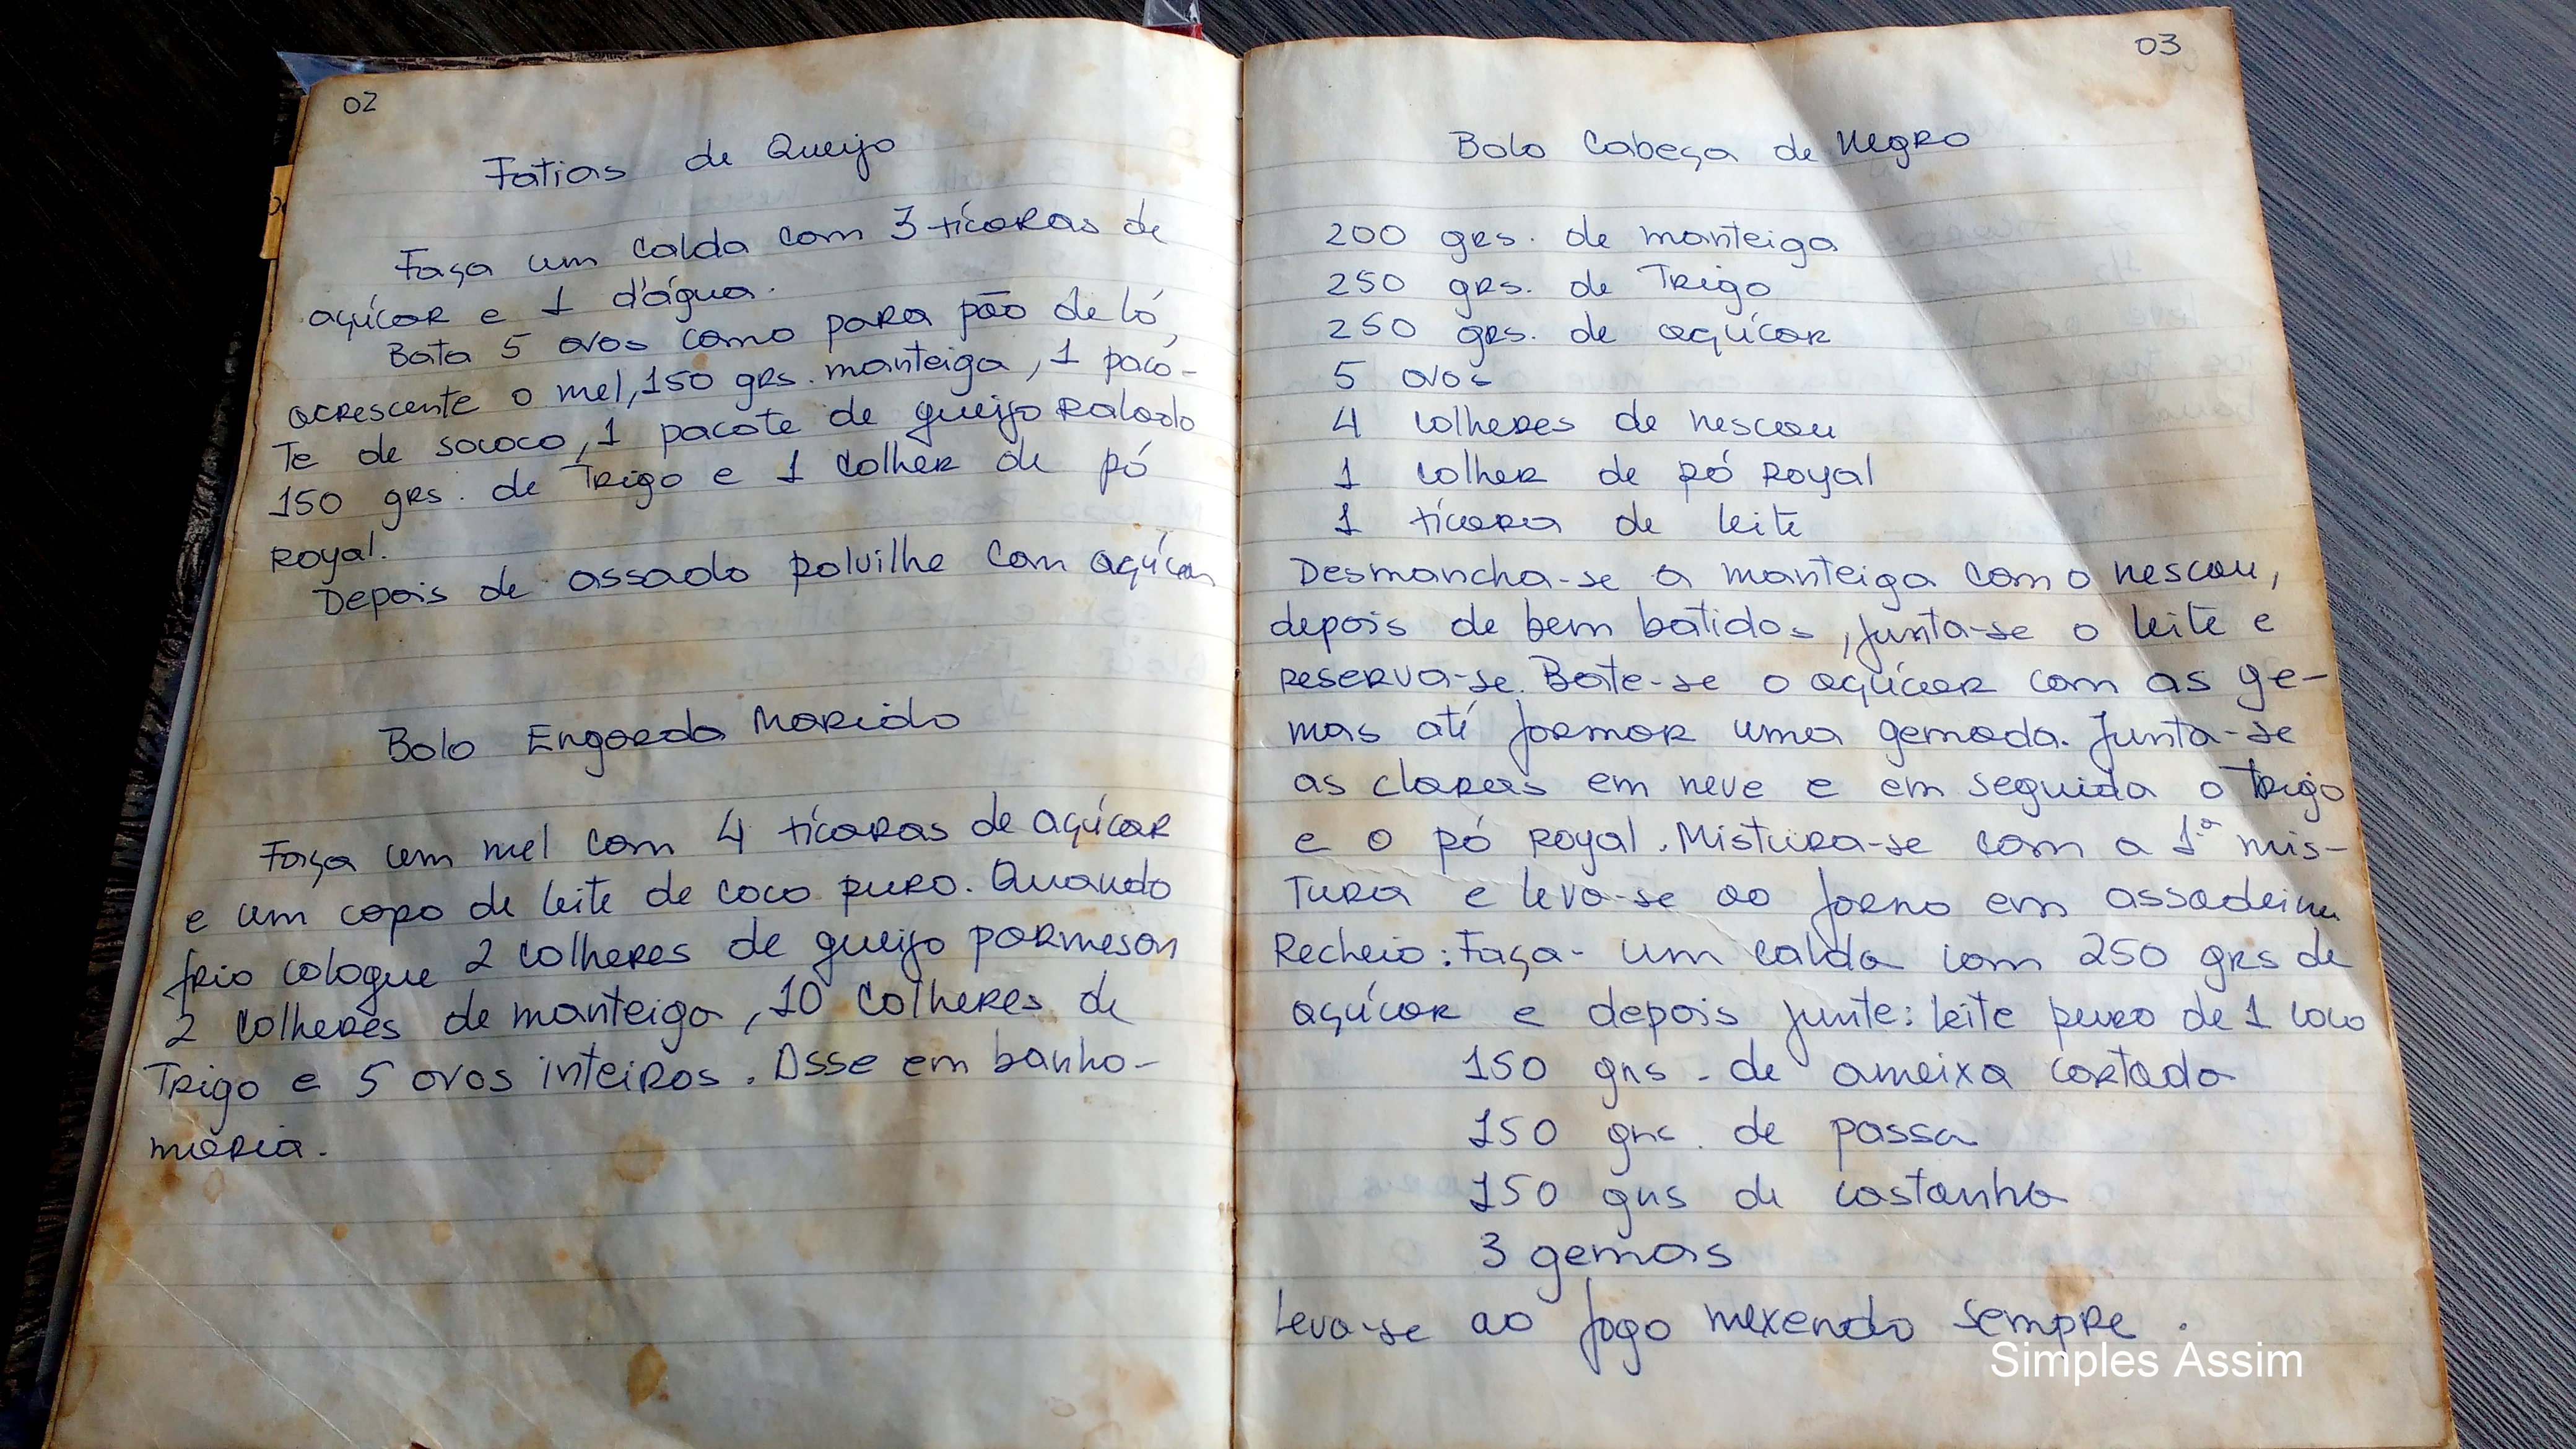 02
Fatias de Queijo
Faça um calda com 3 tícaras de
açúcar e 1 d'água.
Bata 5 ovos como para pão de ló,
acrescente o mel, 150 grs. manteiga, 1 paco-
te de sococo, 1 pacote de queijo ralado
150 grs. de Trigo e 1 colher de pó
royal.
Depois de assado polvilhe com açúcar
Bolo Engorda Marido
Faça um mel com 4 tícaras de açúcar
e um copo de leite de coco puro. Quando
frio coloque 2 colheres de queijo parmeson
2 colheres de manteiga, 10 colheres de
Trigo e 5 ovos inteiros. Asse em banho-
maria.
03
Bolo Cabeça de Negro
200 grs. de manteiga
250 grs. de Trigo
250 grs. de açúcar
5 ovos
4 colheres de nescau
1 colher de pó royal
1 tícara de leite
Desmancha-se a manteiga com o nescau,
depois de bem batidos, junta-se o leite e
reserva-se. Bate-se o açúcar com as ge-
mas até formar uma gemada. Junta-se
as claras em neve e em seguida o Trigo
e o pó royal. Mistura-se com a 1ª mis-
tura e leva-se ao forno em assadeira
Recheio: Faça- um calda com 250 grs de
açúcar e depois junte: leite puro de 1 coco
150 grs - de ameixa cortada
150 grs. de passa
150 grs de castanha
3 gemas
Leva-se ao fogo mexendo sempre.
Simples Assim